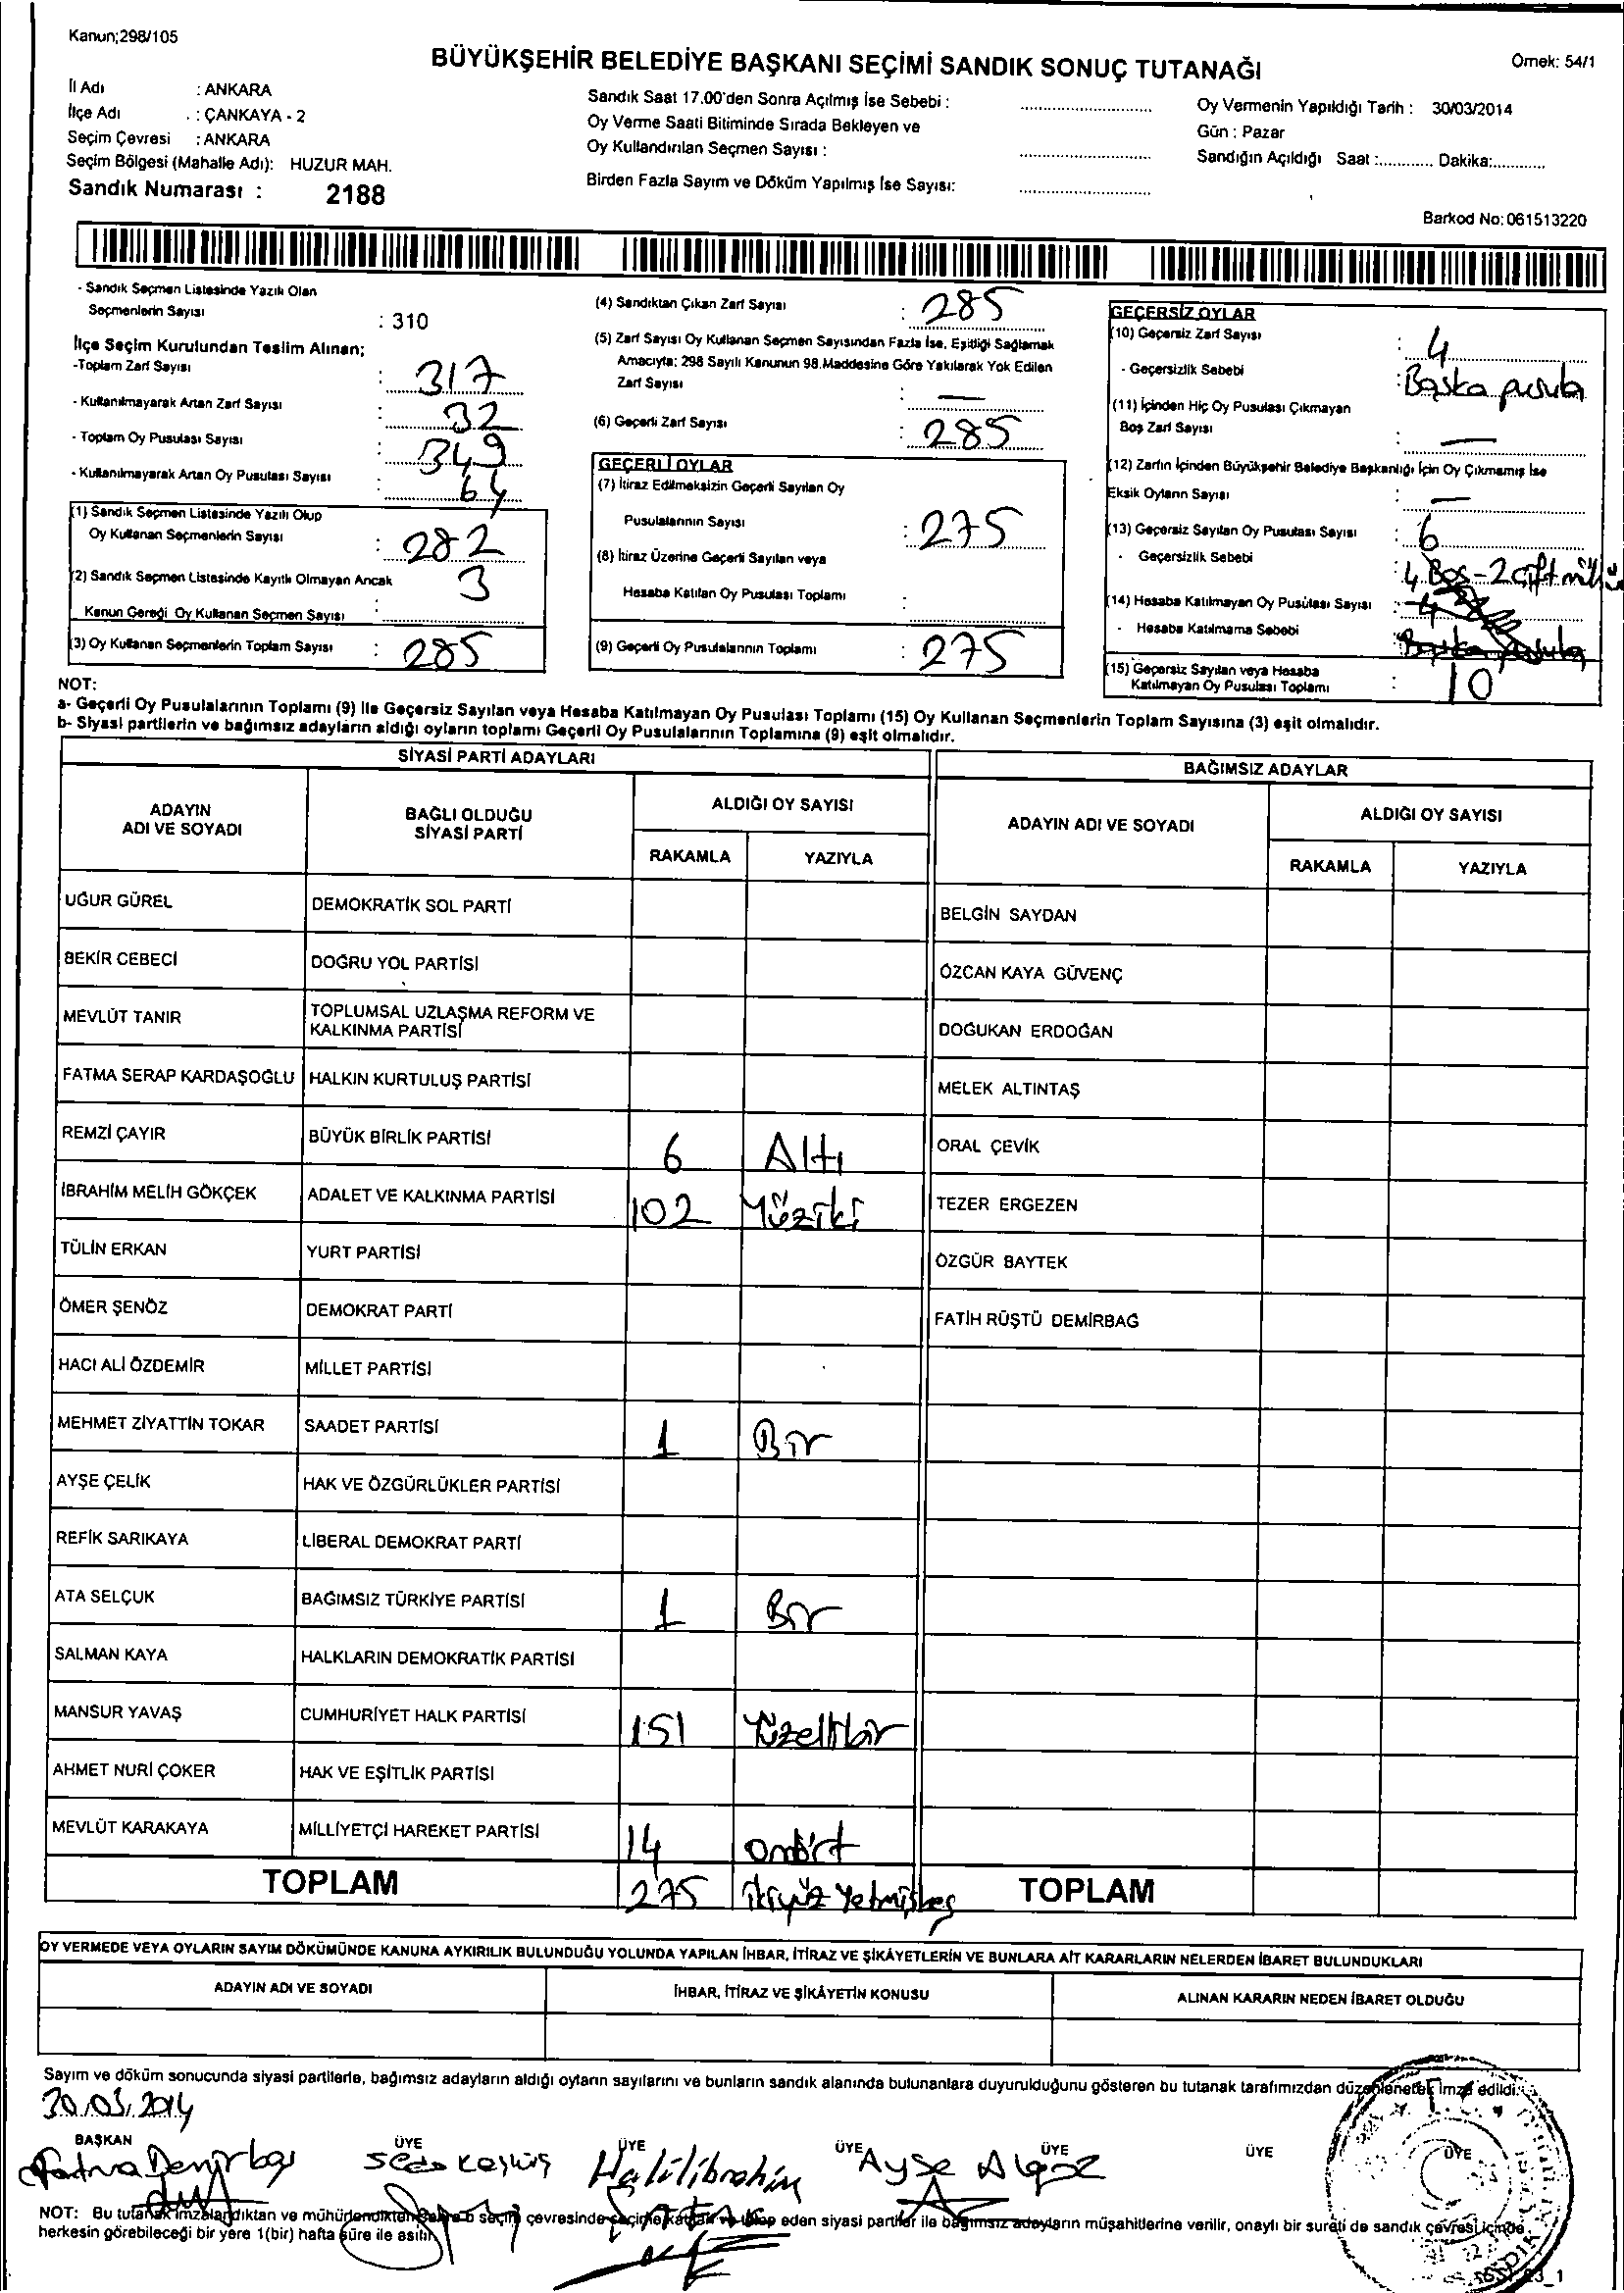 Kanun;298/105
BÜYÜKŞEHİR BELEDİYE BAŞKANI SEÇİMİ SANDIK SONUÇ TUTANAĞI
Örnek: 54/1
İl Adı : ANKARA
İlçe Adı : ÇANKAYA - 2
Seçim Çevresi : ANKARA
Seçim Bölgesi (Mahalle Adı): HUZUR MAH.
Sandık Numarası : 2188
Sandık Saat 17.00'den Sonra Açılmış İse Sebebi : ..............................
Oy Verme Saati Bitiminde Sırada Bekleyen ve
Oy Kullandırılan Seçmen Sayısı : ..............................
Birden Fazla Sayım ve Döküm Yapılmış İse Sayısı: ..............................
Oy Vermenin Yapıldığı Tarih : 30/03/2014
Gün : Pazar
Sandığın Açıldığı Saat :............ Dakika:............
Barkod No: 061513220
- Sandık Seçmen Listesinde Yazılı Olan
Seçmenlerin Sayısı : 310
İlçe Seçim Kurulundan Teslim Alınan;
-Toplam Zarf Sayısı : 317
- Kullanılmayarak Artan Zarf Sayısı : 32
- Toplam Oy Pusulası Sayısı : 349
- Kullanılmayarak Artan Oy Pusulası Sayısı : 64
(1) Sandık Seçmen Listesinde Yazılı Olup
Oy Kullanan Seçmenlerin Sayısı : 282
(2) Sandık Seçmen Listesinde Kayıtlı Olmayan Ancak
Kanun Gereği Oy Kullanan Seçmen Sayısı : 3
(3) Oy Kullanan Seçmenlerin Toplam Sayısı : 285
(4) Sandıktan Çıkan Zarf Sayısı : 285
(5) Zarf Sayısı Oy Kullanan Seçmen Sayısından Fazla İse, Eşitliği Sağlamak
Amacıyla; 298 Sayılı Kanunun 98.Maddesine Göre Yakılarak Yok Edilen
Zarf Sayısı : —
(6) Geçerli Zarf Sayısı : 285
GEÇERLİ OYLAR
(7) İtiraz Edilmeksizin Geçerli Sayılan Oy
Pusulalarının Sayısı : 275
(8) İtiraz Üzerine Geçerli Sayılan veya
Hesaba Katılan Oy Pusulası Toplamı :
(9) Geçerli Oy Pusulalarının Toplamı : 275
GEÇERSİZ OYLAR
(10) Geçersiz Zarf Sayısı : 4
- Geçersizlik Sebebi : Başka pusula
(11) İçinden Hiç Oy Pusulası Çıkmayan
Boş Zarf Sayısı : —
(12) Zarfın İçinden Büyükşehir Belediye Başkanlığı İçin Oy Çıkmamış İse
Eksik Oyların Sayısı : —
(13) Geçersiz Sayılan Oy Pusulası Sayısı : 6
- Geçersizlik Sebebi : 4 Boş - 2 çift
(14) Hesaba Katılmayan Oy Pusulası Sayısı :
- Hesaba Katılmama Sebebi
(15) Geçersiz Sayılan veya Hesaba
Katılmayan Oy Pusulası Toplamı : 10
NOT:
a- Geçerli Oy Pusulalarının Toplamı (9) İle Geçersiz Sayılan veya Hesaba Katılmayan Oy Pusulası Toplamı (15) Oy Kullanan Seçmenlerin Toplam Sayısına (3) eşit olmalıdır.
b- Siyasi partilerin ve bağımsız adayların aldığı oyların toplamı Geçerli Oy Pusulalarının Toplamına (9) eşit olmalıdır.
SİYASİ PARTİ ADAYLARI
ADAYIN ADI VE SOYADI
BAĞLI OLDUĞU SİYASİ PARTİ
ALDIĞI OY SAYISI
RAKAMLA YAZIYLA
UĞUR GÜREL DEMOKRATİK SOL PARTİ
BEKİR CEBECİ DOĞRU YOL PARTİSİ
MEVLÜT TANIR TOPLUMSAL UZLAŞMA REFORM VE
KALKINMA PARTİSİ
FATMA SERAP KARDAŞOĞLU HALKIN KURTULUŞ PARTİSİ
REMZİ ÇAYIR BÜYÜK BİRLİK PARTİSİ 6 Altı
İBRAHİM MELİH GÖKÇEK ADALET VE KALKINMA PARTİSİ 102 Yüziki
TÜLİN ERKAN YURT PARTİSİ
ÖMER ŞENÖZ DEMOKRAT PARTİ
HACI ALİ ÖZDEMİR MİLLET PARTİSİ
MEHMET ZİYATTİN TOKAR SAADET PARTİSİ 1 Bir
AYŞE ÇELİK HAK VE ÖZGÜRLÜKLER PARTİSİ
REFİK SARIKAYA LİBERAL DEMOKRAT PARTİ
ATA SELÇUK BAĞIMSIZ TÜRKİYE PARTİSİ 1 Bir
SALMAN KAYA HALKLARIN DEMOKRATİK PARTİSİ
MANSUR YAVAŞ CUMHURİYET HALK PARTİSİ 151 Yüzellibir
AHMET NURİ ÇOKER HAK VE EŞİTLİK PARTİSİ
MEVLÜT KARAKAYA MİLLİYETÇİ HAREKET PARTİSİ 14 Ondört
TOPLAM 275 ikiyüz Yetmişbeş
BAĞIMSIZ ADAYLAR
ADAYIN ADI VE SOYADI
ALDIĞI OY SAYISI
RAKAMLA YAZIYLA
BELGİN SAYDAN
ÖZCAN KAYA GÜVENÇ
DOĞUKAN ERDOĞAN
MELEK ALTINTAŞ
ORAL ÇEVİK
TEZER ERGEZEN
ÖZGÜR BAYTEK
FATİH RÜŞTÜ DEMİRBAĞ
TOPLAM
OY VERMEDE VEYA OYLARIN SAYIM DÖKÜMÜNDE KANUNA AYKIRILIK BULUNDUĞU YOLUNDA YAPILAN İHBAR, İTİRAZ VE ŞİKÂYETLERİN VE BUNLARA AİT KARARLARIN NELERDEN İBARET BULUNDUKLARI
ADAYIN ADI VE SOYADI İHBAR, İTİRAZ VE ŞİKÂYETİN KONUSU ALINAN KARARIN NEDEN İBARET OLDUĞU
Sayım ve döküm sonucunda siyasi partilerle, bağımsız adayların aldığı oyların sayılarını ve bunların sandık alanında bulunanlara duyurulduğunu gösteren bu tutanak tarafımızdan düzenlenerek imza edildi.
30.03.2014
BAŞKAN ÜYE ÜYE ÜYE ÜYE ÜYE ÜYE
Fatma Demirbaş Seda Halilibrahim Ayşe
NOT: Bu tutanak imzalandıktan ve mühürlendikten sonra o seçim çevresinde seçime katılan ve talep eden siyasi partiler ile bağımsız adayların müşahitlerine verilir, onaylı bir sureti de sandık çevresi içinde
herkesin görebileceği bir yere 1(bir) hafta süre ile asılır.